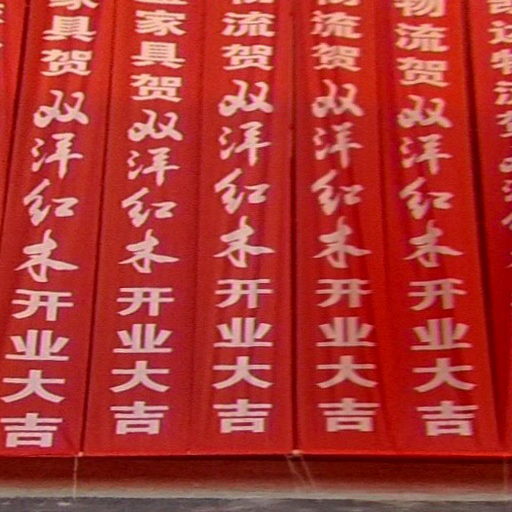 家具贺双洋红木开业大吉
家具贺双洋红木开业大吉
物流贺双洋红木开业大吉
物流贺双洋红木开业大吉
物流贺双洋红木开业大吉
达物流贺